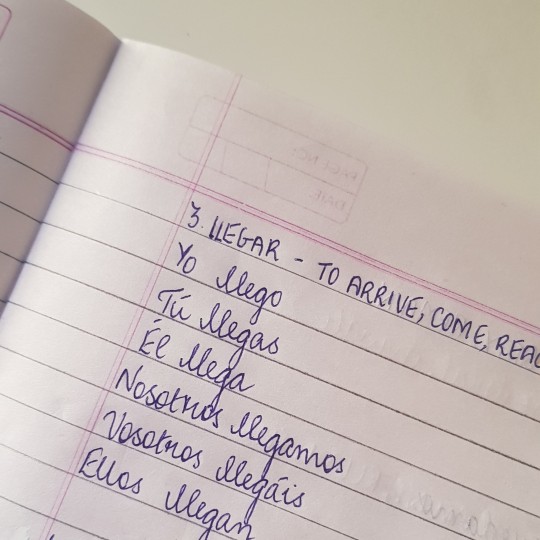 3. LLEGAR - TO ARRIVE, COME, REAC
Yo llego
Tú llegas
Él llega
Nosotros llegamos
Vosotros llegáis
Ellos llegan